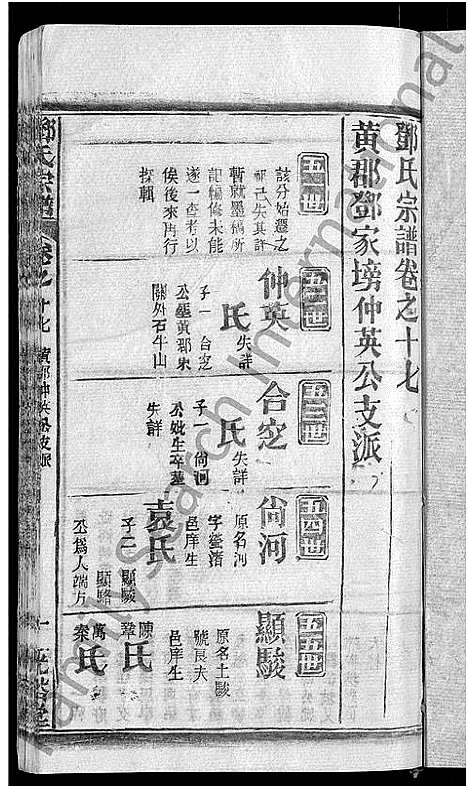 鄧氏宗譜卷之十七
黄郡鄧家塝仲英公支派
五一世
該分始遷之
祖已失其詳
暫就墨稿所
記編修未能
遂一查考以
俟後來再行
採輯
五二世
仲英
氏 失詳
子一 合宏
公塟黄郡朱
關外石牛山
五三世
合宏
氏 失詳
子一 尙河
公妣生卒塟
失詳
五四世
尙河
原名河
邑庠生
袁氏
子二 顯駿
顯
公爲人端方
五五世
顯駿
原名士駿
號良夫
邑庠生
陳氏
萬氏
秦氏
鄧氏宗譜
卷之十七 黄郡仲英公支派
一
FamilySearch International